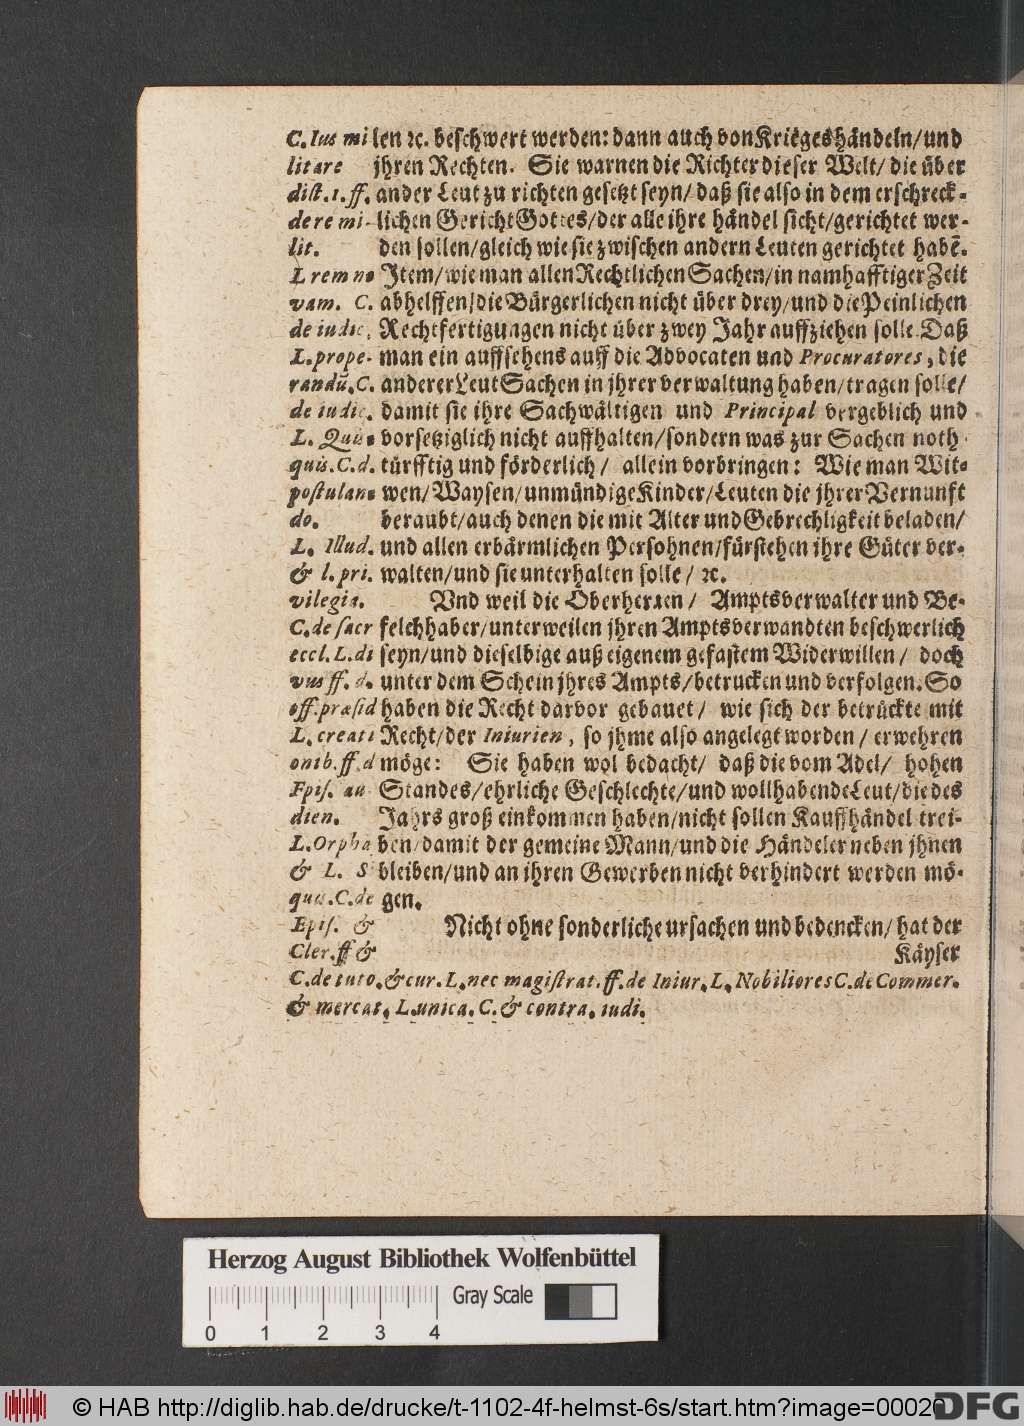 C. Ius mi len ꝛc. beschwert werden: dann auch von Kriegeshändeln/ und
litare jhren Rechten. Sie warnen die Richter dieser Welt/ die über
dist. 1. ff. ander Leut zu richten gesetzt seyn/ daß sie also in dem erschreck-
de re mi- lichen Gericht Gottes/ der alle ihre händel sicht/ gerichtet wer-
lit. den sollen/ gleich wie sie zwischen andern Leuten gerichtet habẽ.
L rem no Jtem/ wie man allen Rechtlichen Sachen/ in namhafftiger Zeit
vam. C. abhelffen/ die Bürgerlichen nicht über drey/ und die Peinlichen
de iudic. Rechtfertigungen nicht über zwey Jahr auffziehen solle. Daß
L. prope- man ein auffsehens auff die Advocaten und Procuratores, die
randũ. C. anderer Leut Sachen in jhrer verwaltung haben/ tragen solle/
de iudic. damit sie ihre Sachwältigen und Principal vergeblich und
L. Quis- vorsetziglich nicht auffhalten/ sondern was zur Sachen noth-
quis. C. d. türfftig und förderlich/ allein vorbringen: Wie man Wit-
postulan- wen/ Waysen/ unmündige Kinder/ Leuten die jhrer Vernunft
do. beraubt/ auch denen die mit Alter und Gebrechligkeit beladen/
L. Illud. und allen erbärmlichen Persohnen/ fürstehen ihre Güter ver-
& l. pri. walten/ und sie unterhalten solle/ ꝛc.
vilegia. Vnd weil die Oberherren/ Amptsverwalter und Be-
C. de sacr felchhaber/ unterweilen jhren Amptsverwandten beschwerlich
eccl. L. di seyn/ und dieselbige auß eigenem gefastem Widerwillen/ doch
vus ff. d. unter dem Schein jhres Ampts/ betrucken und verfolgen. So
off. præsid haben die Recht darvor gebauet/ wie sich der betrückte mit
L. creati Recht/ der Iniurien, so jhme also angelegt worden/ erwehren
onib. ff. d möge: Sie haben wol bedacht/ daß die vom Adel/ hohen
Epis. au Standes/ ehrliche Geschlechte/ und wollhabende Leut/ die des
dien. Jahrs groß einkommen haben/ nicht sollen Kauffhändel trei-
L. Orpha ben/ damit der gemeine Mann/ und die Händeler neben jhnen
& L. S bleiben/ und an ihren Gewerben nicht verhindert werden mö-
quis. C. de gen.
Epis. & Nicht ohne sonderliche ursachen und bedencken/ hat der
Cler. ff & Käyser
C. de tuto. & cur. L. nec magistrat. ff. de Iniur. L. Nobiliores C. de Commer.
& mercat. L. unica. C. & contra. iudi.
Herzog August Bibliothek Wolfenbüttel
Gray Scale
0 1 2 3 4
© HAB http://diglib.hab.de/drucke/t-1102-4f-helmst-6s/start.htm?image=00020
DFG